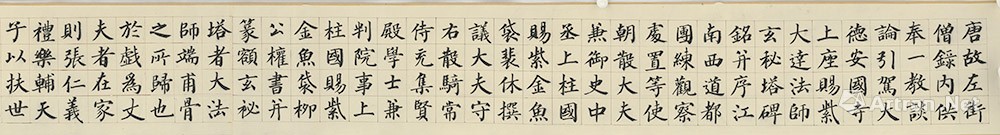 唐故左街
僧錄內供
奉一教談
論引駕大
德安國寺
上座賜紫
大達法師
玄秘塔碑
銘并序江
南西道都
團練觀察
處置等使
朝散大夫
兼御史中
丞上柱國
賜紫金魚
袋裴休撰
議大夫守
右散騎常
侍充集賢
殿學士兼
判院事上
柱國賜紫
金魚袋柳
公權書并
篆額玄秘
塔者大法
師端甫骨
之所歸也
於戲為丈
夫者在家
則張仁義
禮樂輔天
子以扶世
Artron.Net